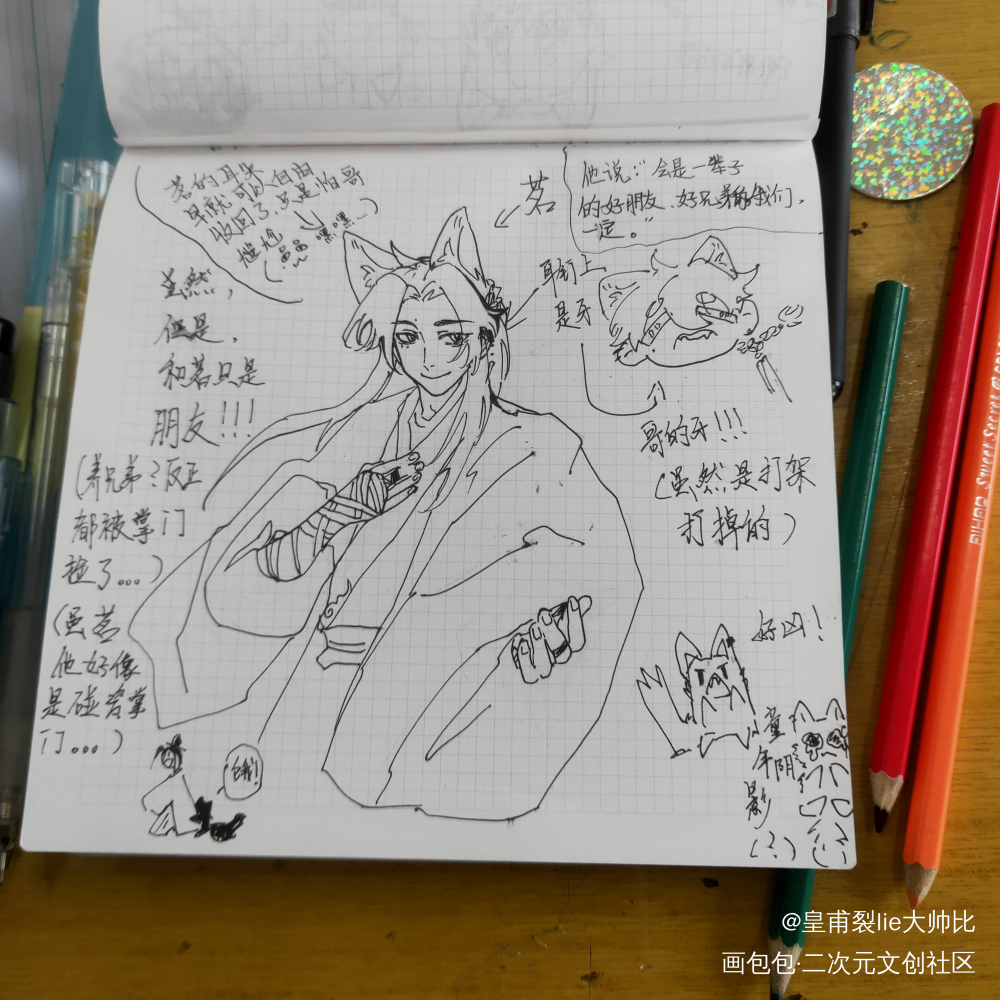 茗的耳朵
早就可以自由
收回了,只是怕哥
尴尬
(
嘿嘿…)
茗
他说:“会是一辈子
的好朋友、好兄弟的我们,
一定。”
虽然,
但是,
和茗只是
朋友!!!
(养兄弟?反正
都被掌门
捡了...)
(虽茗
他好像
是碰瓷掌
门...)
饿!
耳钉上
是牙
哥的牙!!!
(虽然是打架
打掉的)
好凶!
童
年阴
影
(?)
@皇甫裂lie大帅比
画包包·二次元文创社区